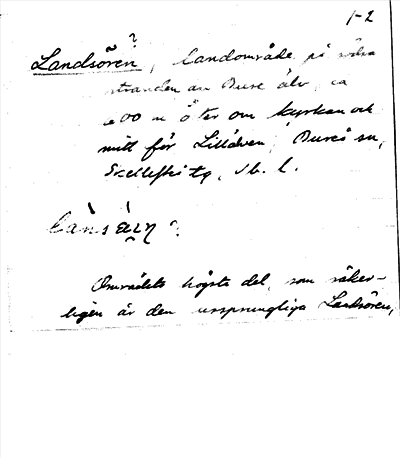 1-2
Landsören?, landområde på södra
stranden av Bure älv, ca
200 m öster om kyrkan och
mitt för Lillåven, Bureå sn,
Skellefteå tg, Vb. l.
Områdets högsta del, som säker-
ligen är den ursprungliga Landsören,